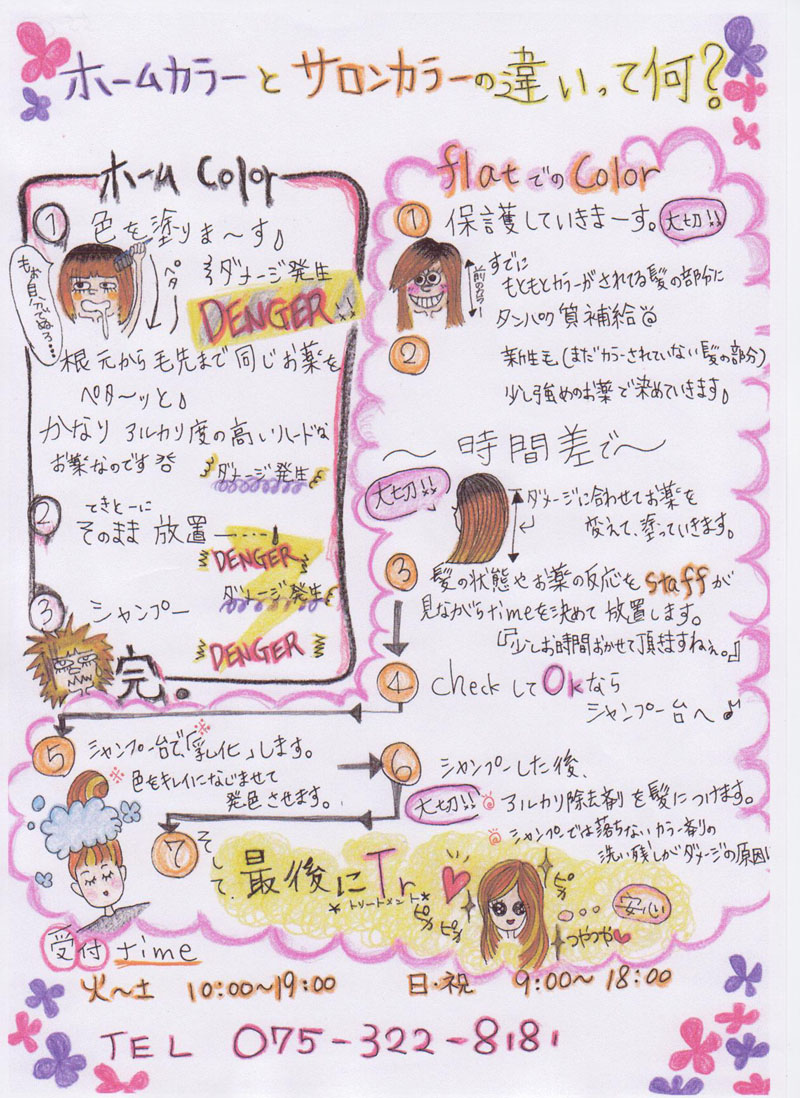 ホームカラーとサロンカラーの違いって何?
ホーム Color
① 色を塗りま〜す♪
もぉ自分でぬろ…
ペター
ダメージ発生
DENGER!!
根元から毛先まで同じお薬を
ペタ〜ッと♪
かなり アルカリ度の高いハードな
お薬なのです
ダメージ発生
② てきとーに
そのまま 放置……
DENGER
ダメージ発生
③ シャンプー
DENGER
完.
flatでのColor
① 保護していきまーす。大切!!
前のカラー
すでに
もともとカラーがされてる髪の部分に
タンパク質補給
② 新生毛(まだカラーされていない髪の部分)
少し強めのお薬で染めていきます♪
〜時間差で〜
大切!!
ダメージに合わせてお薬を
変えて、塗っていきます。
③ 髪の状態やお薬の反応をstaffが
見ながらtimeを決めて放置します。
『少しお時間おかせて頂きますねぇ。』
④ checkしてOkなら
シャンプー台へ♪
⑤ シャンプー台で「乳化」※します。
※色をキレイになじませて
発色させます。
⑥ シャンプーした後、
大切!! アルカリ除去剤を髪につけます。
シャンプーでは落ちないカラー剤の
洗い残しがダメージの原因
⑦ そして 最後にTr
*トリートメント*
ピカ
ピカ
ピカ
安心
つやつや♥
受付time
火〜土 10:00〜19:00 日・祝 9:00〜18:00
TEL 075-322-8181